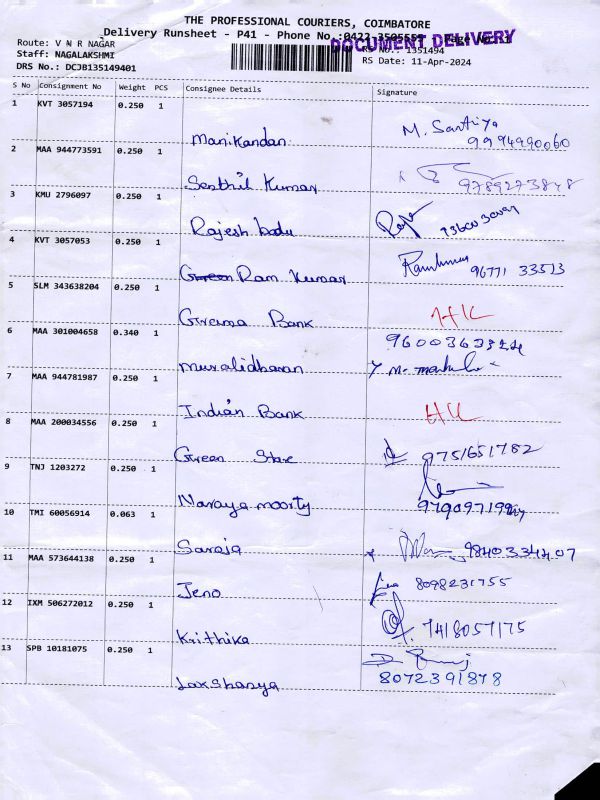 THE PROFESSIONAL COURIERS, COIMBATORE
Delivery Runsheet - P41 - Phone No.:0422-3505555 Page No.
DOCUMENT DELIVERY
Route: V N R NAGAR RS No.: 1351494
Staff: NAGALAKSHMI RS Date: 11-Apr-2024
DRS No.: DCJB135149401
S No Consignment No Weight PCS Consignee Details Signature
1 KVT 3057194 0.250 1
Manikandan M. Santiya
9994990060
2 MAA 944773591 0.250 1
Senthil Kumar 9789273848
3 KMU 2796097 0.250 1
Rajesh babu
4 KVT 3057053 0.250 1
Green Ram Kumar Ramkumar 96771 33513
5 SLM 343638204 0.250 1
Grama Bank HK
6 MAA 301004658 0.340 1 9600363324
muralidharan
7 MAA 944781987 0.250 1
Indian Bank HK
8 MAA 200034556 0.250 1
Green Star 9751651782
9 TNJ 1203272 0.250 1
Narayamoorty
10 TMI 60056914 0.063 1
Saroja 9840334407
11 MAA 573644138 0.250 1
Jeno 8098231755
12 IXM 506272012 0.250 1
Krithika 7418057175
13 SPB 10181075 0.250 1
Laxshanya 8072391878